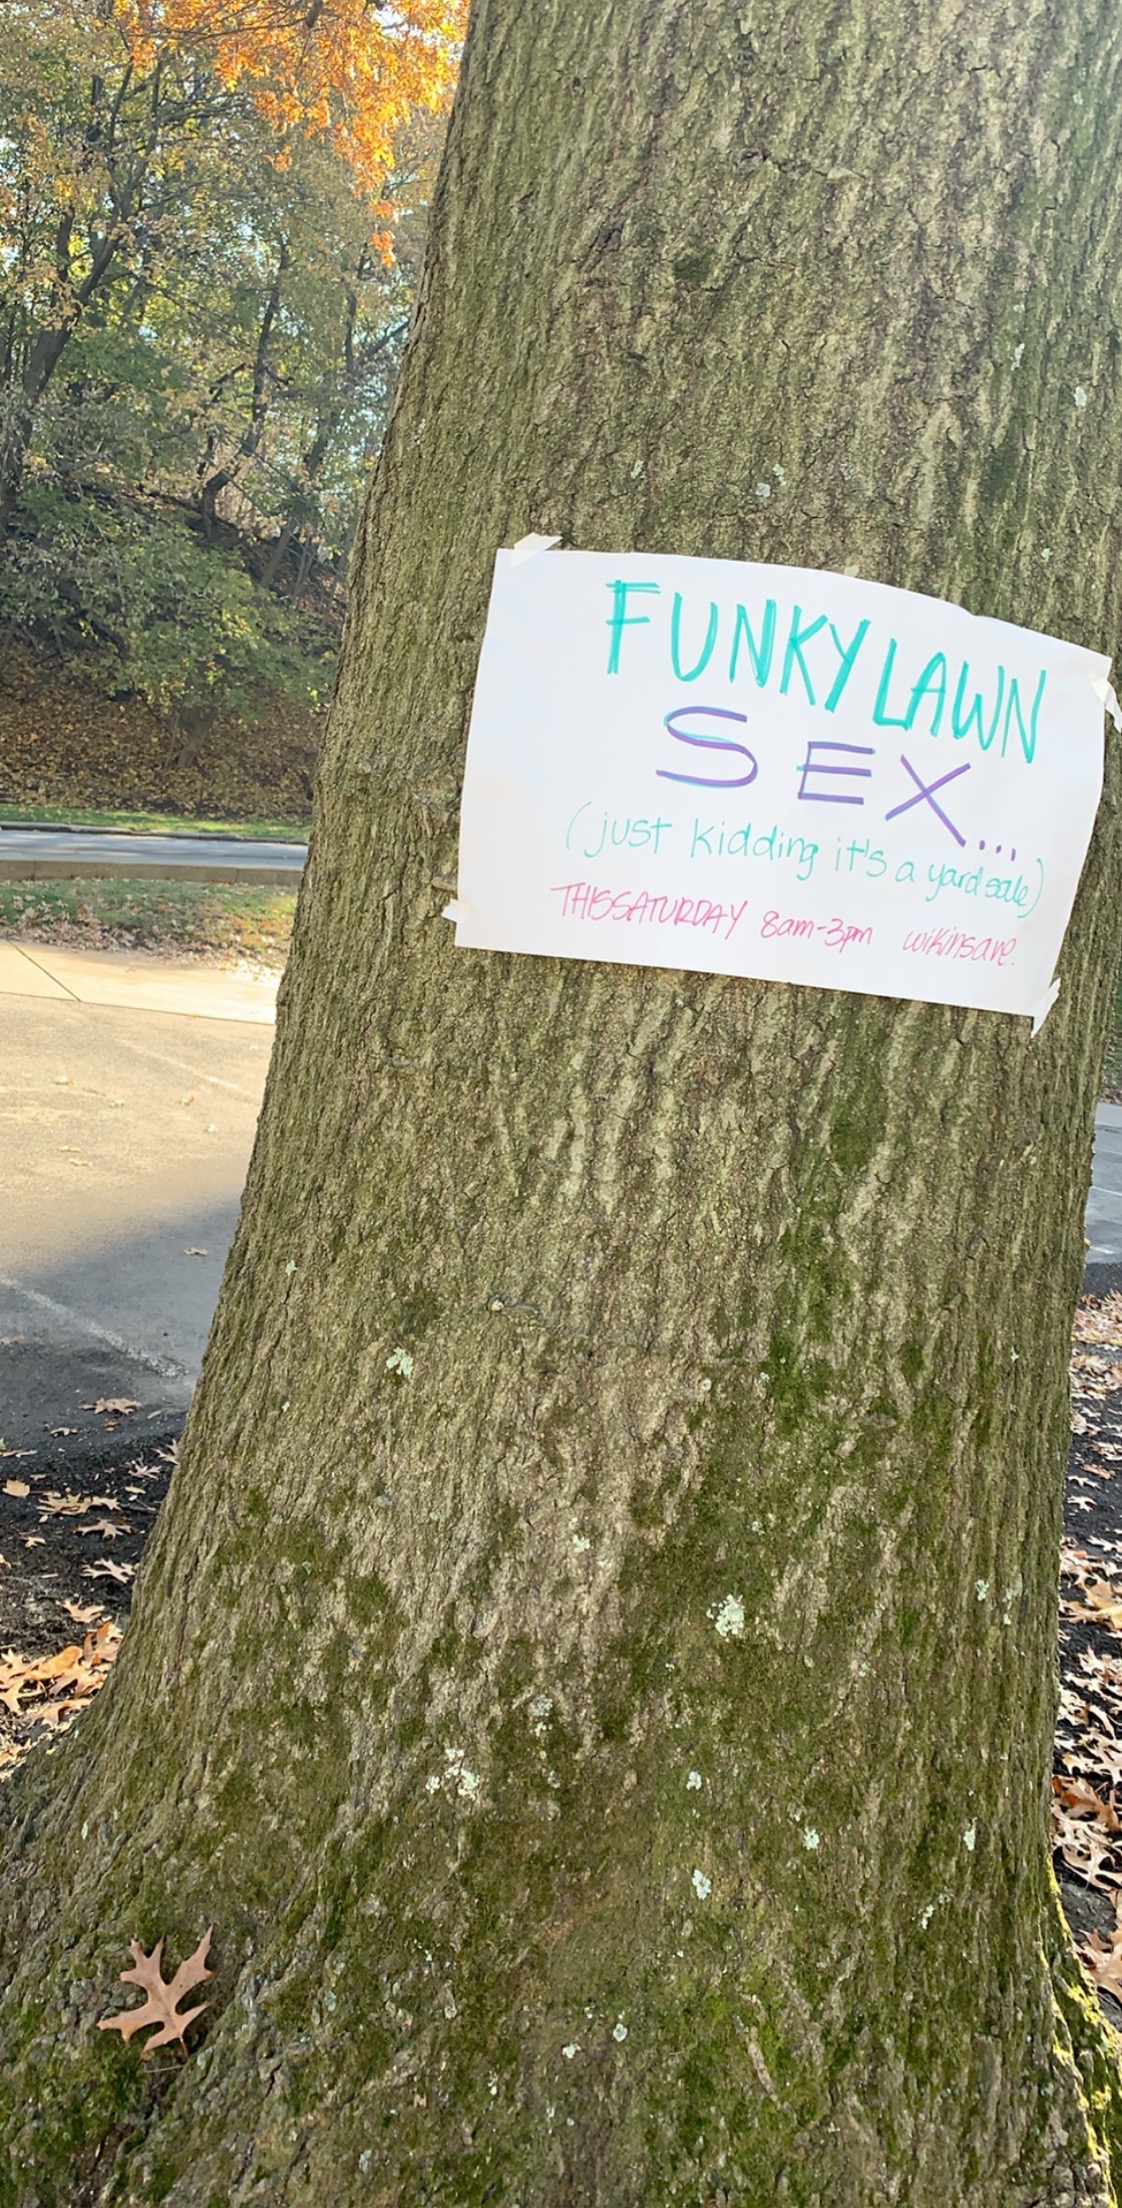 FUNKY LAWN
SEX...
(just kidding it's a yard sale)
THIS SATURDAY 8am-3pm wikinsave.